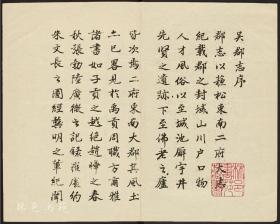 吳郡志序
郡志以擬松東南二府大志
紀載郡之封城山川戶口物
人才風俗以至城池廨宇井
先賢之遺跡下至佛老之廬
皆次焉二府東南大都其風土
亡已畧見於禹貢周職方爾雅
諸書如子貢之越絕趙曄之春
秋張勃陸廣微之記錄羅處約
朱文長之圖經龔明之筆紀聞